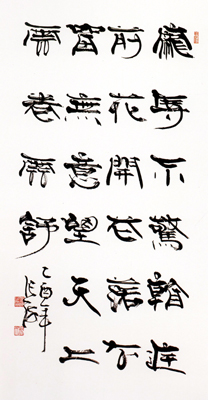 寵辱不驚看庭
前花開花落去
留無意望天上
雲卷雲舒
乙酉年
張海